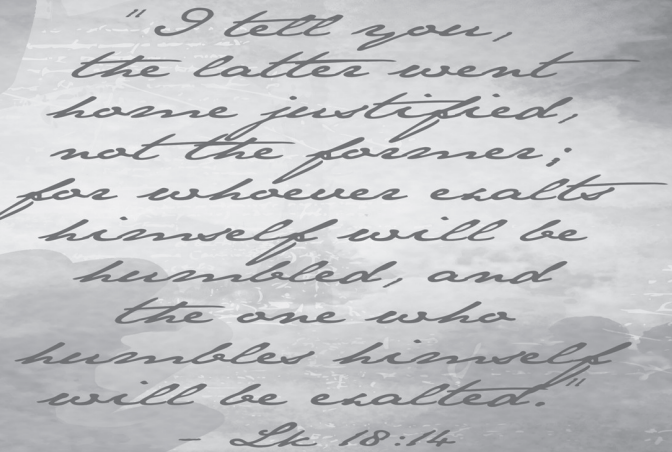 "I tell you,
the latter went
home justified,
not the former;
for whoever exalts
himself will be
humbled, and
the one who
humbles himself
will be exalted."
- Lk 18:14